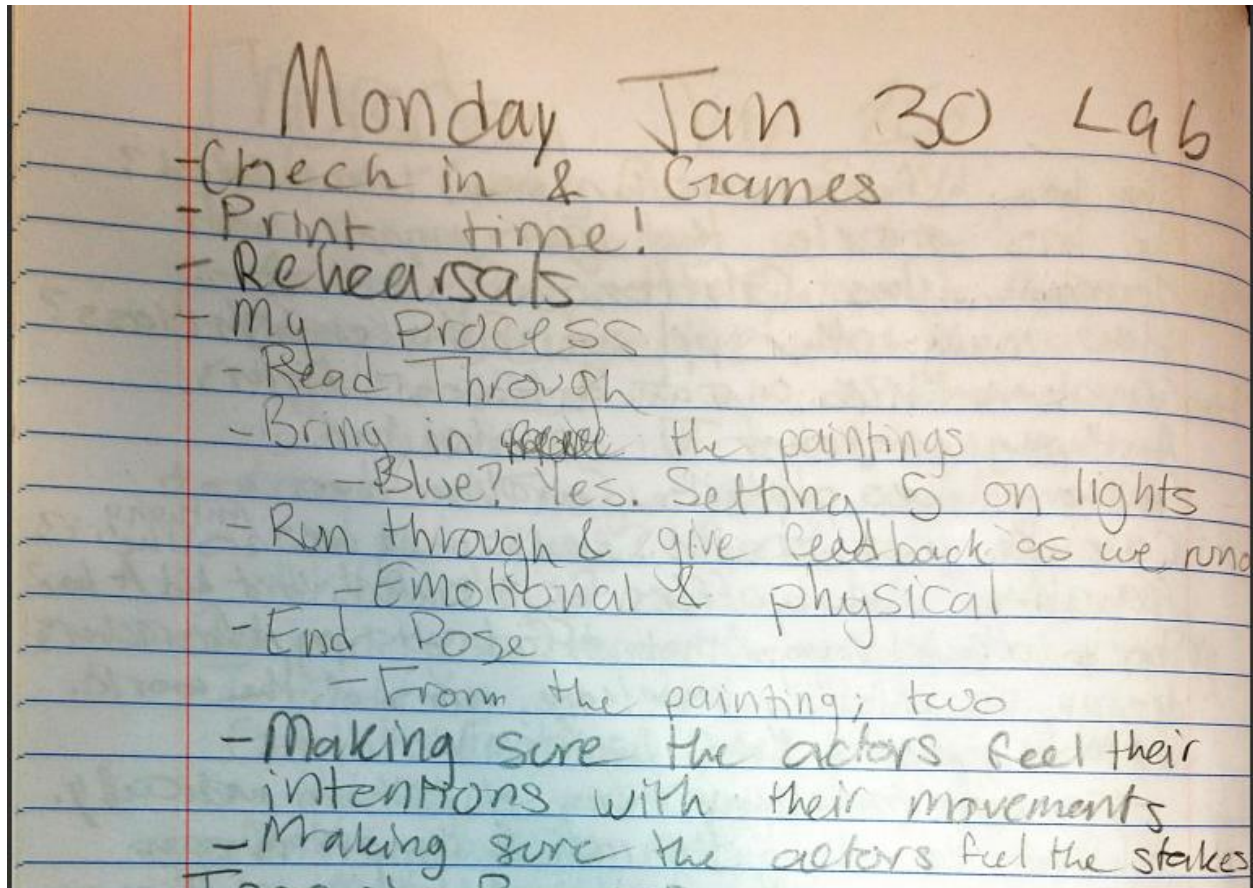 Monday Jan 30 Lab
- Check in & Games
- Print time!
- Rehearsals
- My Process
- Read Through
- Bring in the paintings
- Blue? Yes. Setting 5 on lights
- Run through & give feedback as we run
- Emotional & physical
- End Pose
- From the painting; two
- Making sure the actors feel their
intentions with their movements
- Making sure the actors feel the stakes